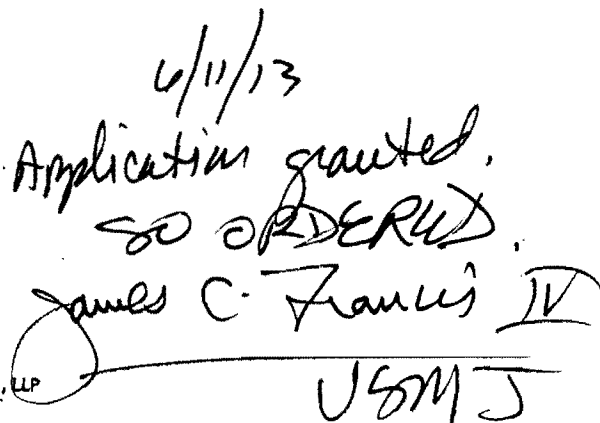 6/11/13
Application granted.
SO ORDERED.
James C. Francis IV
LLP
USMJ